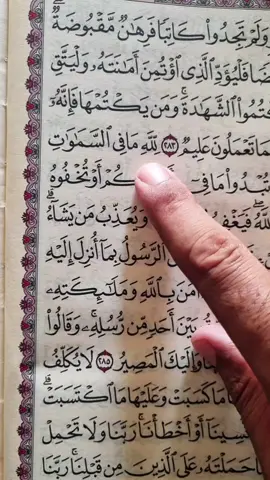 وَلَمْ تَجِدُوا۟ كَاتِبًا فَرِهَـٰنٌ مَّقْبُوضَةٌ
فَلْيُؤَدِّ ٱلَّذِى ٱؤْتُمِنَ أَمَـٰنَتَهُۥ وَلْيَتَّقِ
كْتُمُوا۟ ٱلشَّهَـٰدَةَ وَمَن يَكْتُمْهَا فَإِنَّهُۥٓ
مَا تَعْمَلُونَ عَلِيمٌ ٢٨٣ لِّلَّهِ مَا فِى ٱلسَّمَـٰوَٰتِ
بْدُوا۟ مَا فِىٓ كُمْ أَوْ تُخْفُوهُ
للَّهُ فَيَغْفِرُ وَيُعَذِّبُ مَن يَشَآءُ
ٱلرَّسُولُ بِمَآ أُنزِلَ إِلَيْهِ
ءَامَنَ بِٱللَّهِ وَمَلَـٰٓئِكَتِهِۦ
بَيْنَ أَحَدٍ مِّن رُّسُلِهِۦ وَقَالُوا۟
وَإِلَيْكَ ٱلْمَصِيرُ ٢٨٥ لَا يُكَلِّفُ
مَا كَسَبَتْ وَعَلَيْهَا مَا ٱكْتَسَبَتْ
نَّسِينَآ أَوْ أَخْطَأْنَا رَبَّنَا وَلَا تَحْمِلْ
حَمَلْتَهُۥ عَلَى ٱلَّذِينَ مِن قَبْلِنَا رَبَّنَا